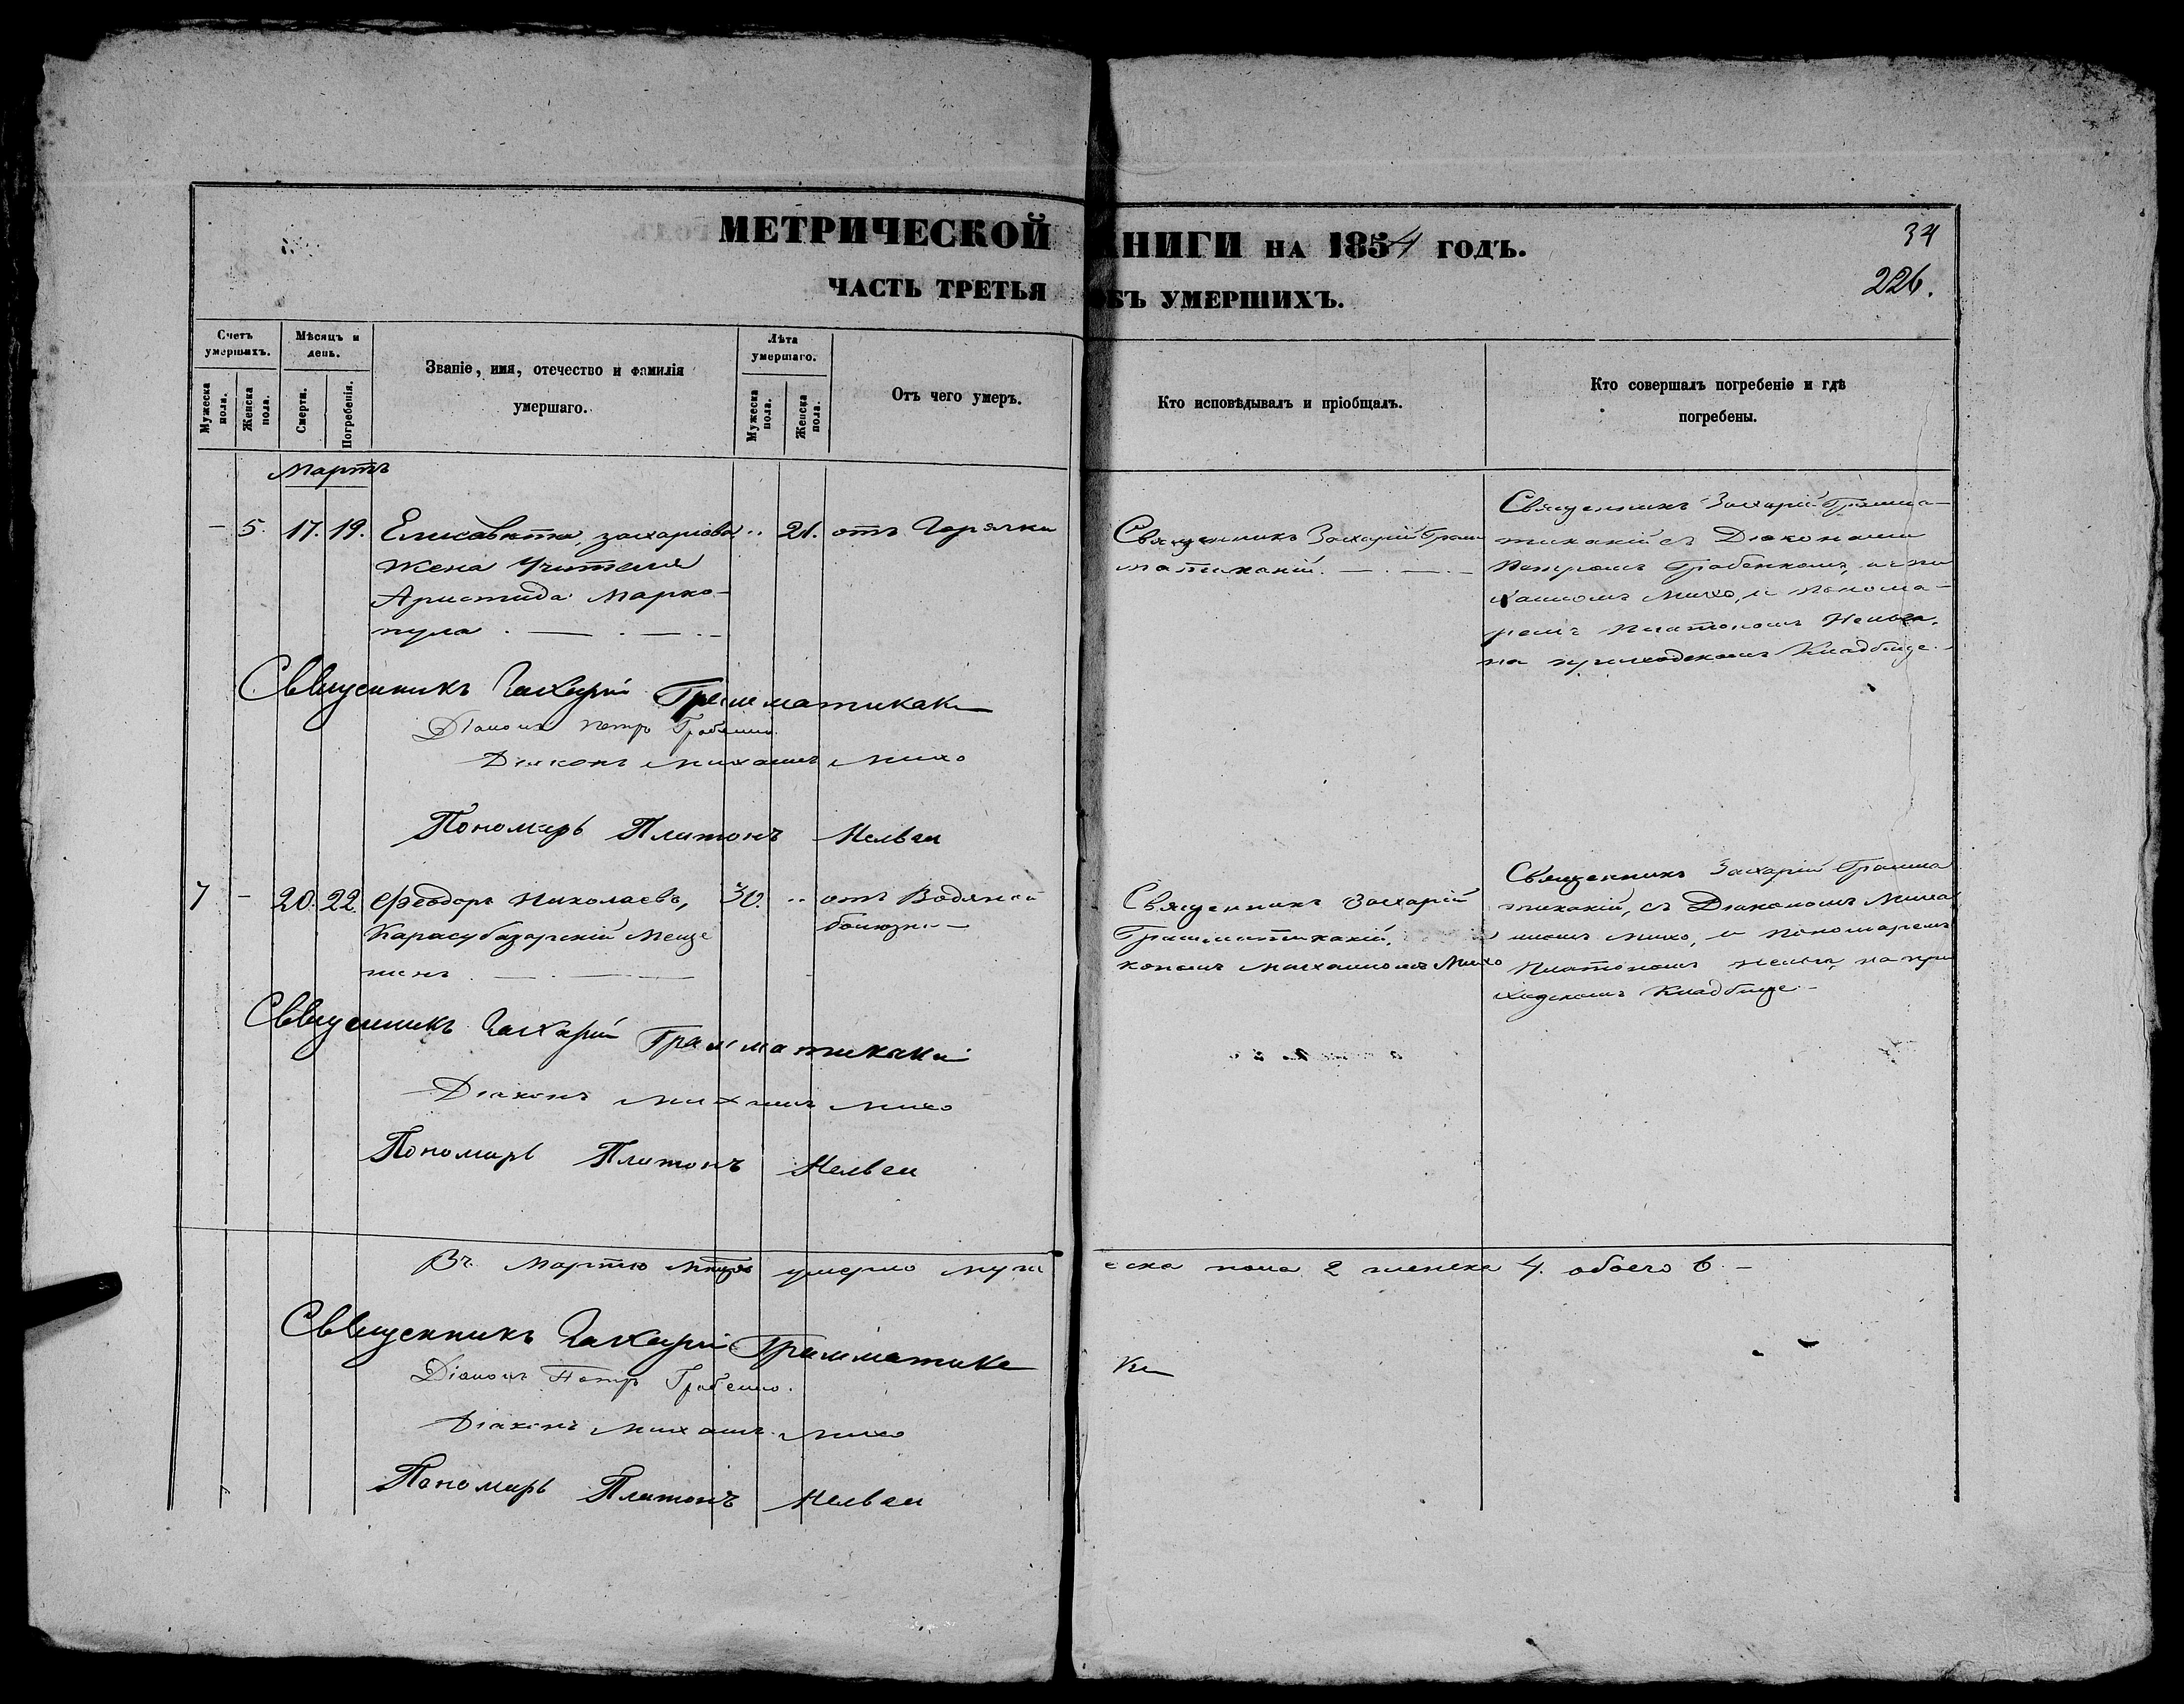 МЕТРИЧЕСКОЙ КНИГИ НА 1854 ГОДЪ.
34
226.
ЧАСТЬ ТРЕТЬЯ ОБЪ УМЕРШИХЪ.
Счетъ умершихъ.
Мужеска пола.
Женска пола.
Мѣсяцъ и день.
Смерти.
Погребенія.
Званіе, имя, отечество и фамилія умершаго.
Лѣта умершаго.
Мужеска пола.
Женска пола.
Отъ чего умеръ.
Кто исповѣдывалъ и пріобщалъ.
Кто совершалъ погребеніе и гдѣ погребены.
Мартъ
– 5. 17. 19. Елисавета, захаріова .. 21. отъ Горячки
жена Учителя
Аристида Марко-
пула
Священникъ Захарій Грам
матикакій.
Священникъ Захарій Грамма-
тикакій съ Діаконами
Петромъ Грабенкомъ, и Ми
хаиломъ Михо, и Понома-
ремъ Платономъ Мельга,
на приходскомъ Кладбище.
Священникъ Захарій Грамматикаки
Діаконъ Петръ Грабенко.
Діаконъ Михаилъ Михо
Пономарь Платонъ
7 – 20. 22. Феодоръ Николаевъ, 30. .. отъ Водяной
Карасубазарскій Меще болюзни
нинъ
Священникъ Захарій
Грамматикакій,
кономъ Михаиломъ Михо
Священникъ Захарій Грамма
тикакій, съ Діакономъ Миха
иломъ Михо, и Пономаремъ
Платономъ на при
ходскомъ Кладбище
Священникъ Захарій Грамматикаки
Діаконъ Михаилъ Михо
Пономарь Платонъ
Въ Мартѣ Мѣсяцѣ умерло мужеска пола 2 женска 4. обоего 6. –
Священникъ Захарій Грамматикаки
Діаконъ Петръ Грабенко.
Діаконъ Михаилъ Михо
Пономарь Платонъ